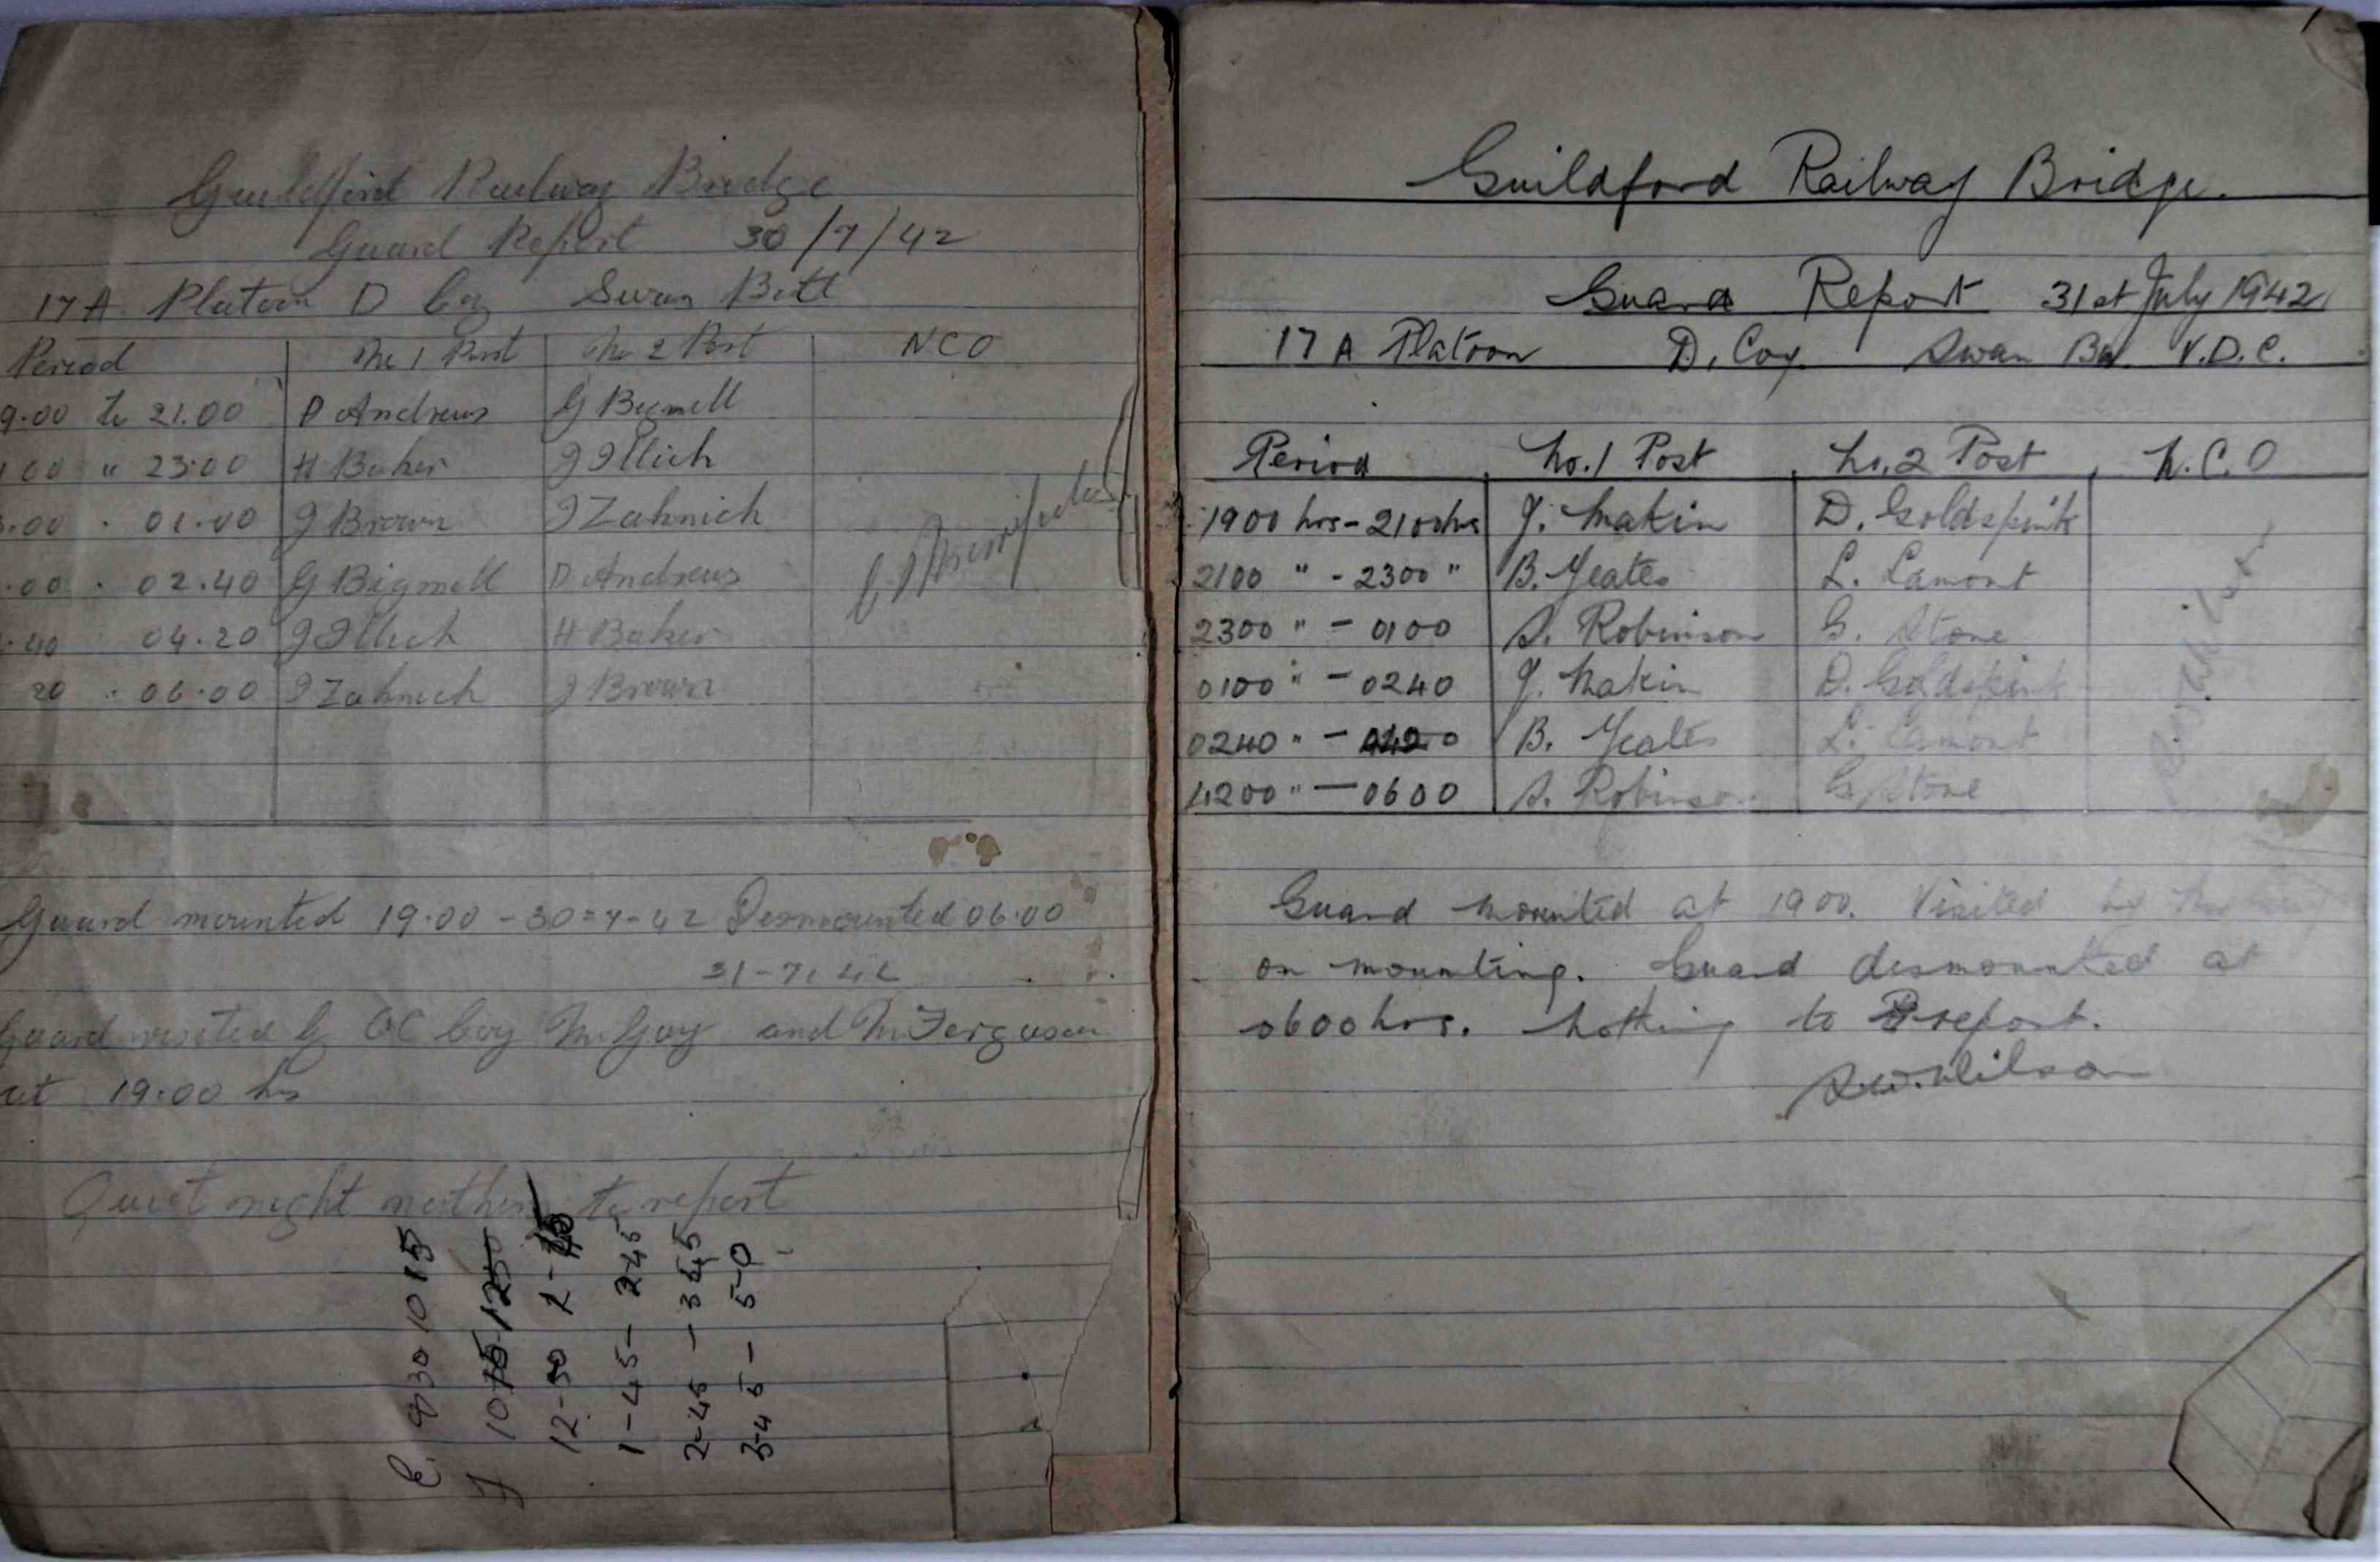 Guildford Railway Bridge
Guard Report 30/7/42
17A Platoon D Coy Swan Batt
Period No 1 Post No 2 Post NCO
9.00 to 21.00 D Andrews G Bignell
00 " 23.00 H Baker J Illich
.00 " 01.00 J Brown J Zahnich
.00 " 02.40 G Bignell D Andrews
.40 " 04.20 J Illich H Baker
20 " 06.00 J Zahnich J Brown
Guard mounted 19.00 - 30=7-42 Desmounted 06.00
31-7.42
Guard visited by OC Coy Mr Guy and Mr Ferguson
at 19.00 hrs
Quiet night nothing to report
E. 830 10 15
10 15 1230
12-30 1-45
1-45- 245
2-45 - 345
3-45 - 5-0
Guildford Railway Bridge.
Guard Report 31st July 1942
17 A Platoon D. Coy. Swan Bn. V.D.C.
Period No. 1 Post No. 2 Post N.C.O
1900 hrs - 2100hrs J. Makin D. Goldspink
2100 " - 2300 " B. Yeates L. Lamont
2300 " - 0100 S. Robinson G. Stone
0100 " - 0240 J. Makin D. Goldspink
0240 " - 0420 B. Yeates L. Lamont
4200 " - 0600 S. Robinson G. Stone
Guard mounted at 1900. Visited by
on mounting. Guard desmounted at
0600 hrs. Nothing to report.
S.W. Wilson